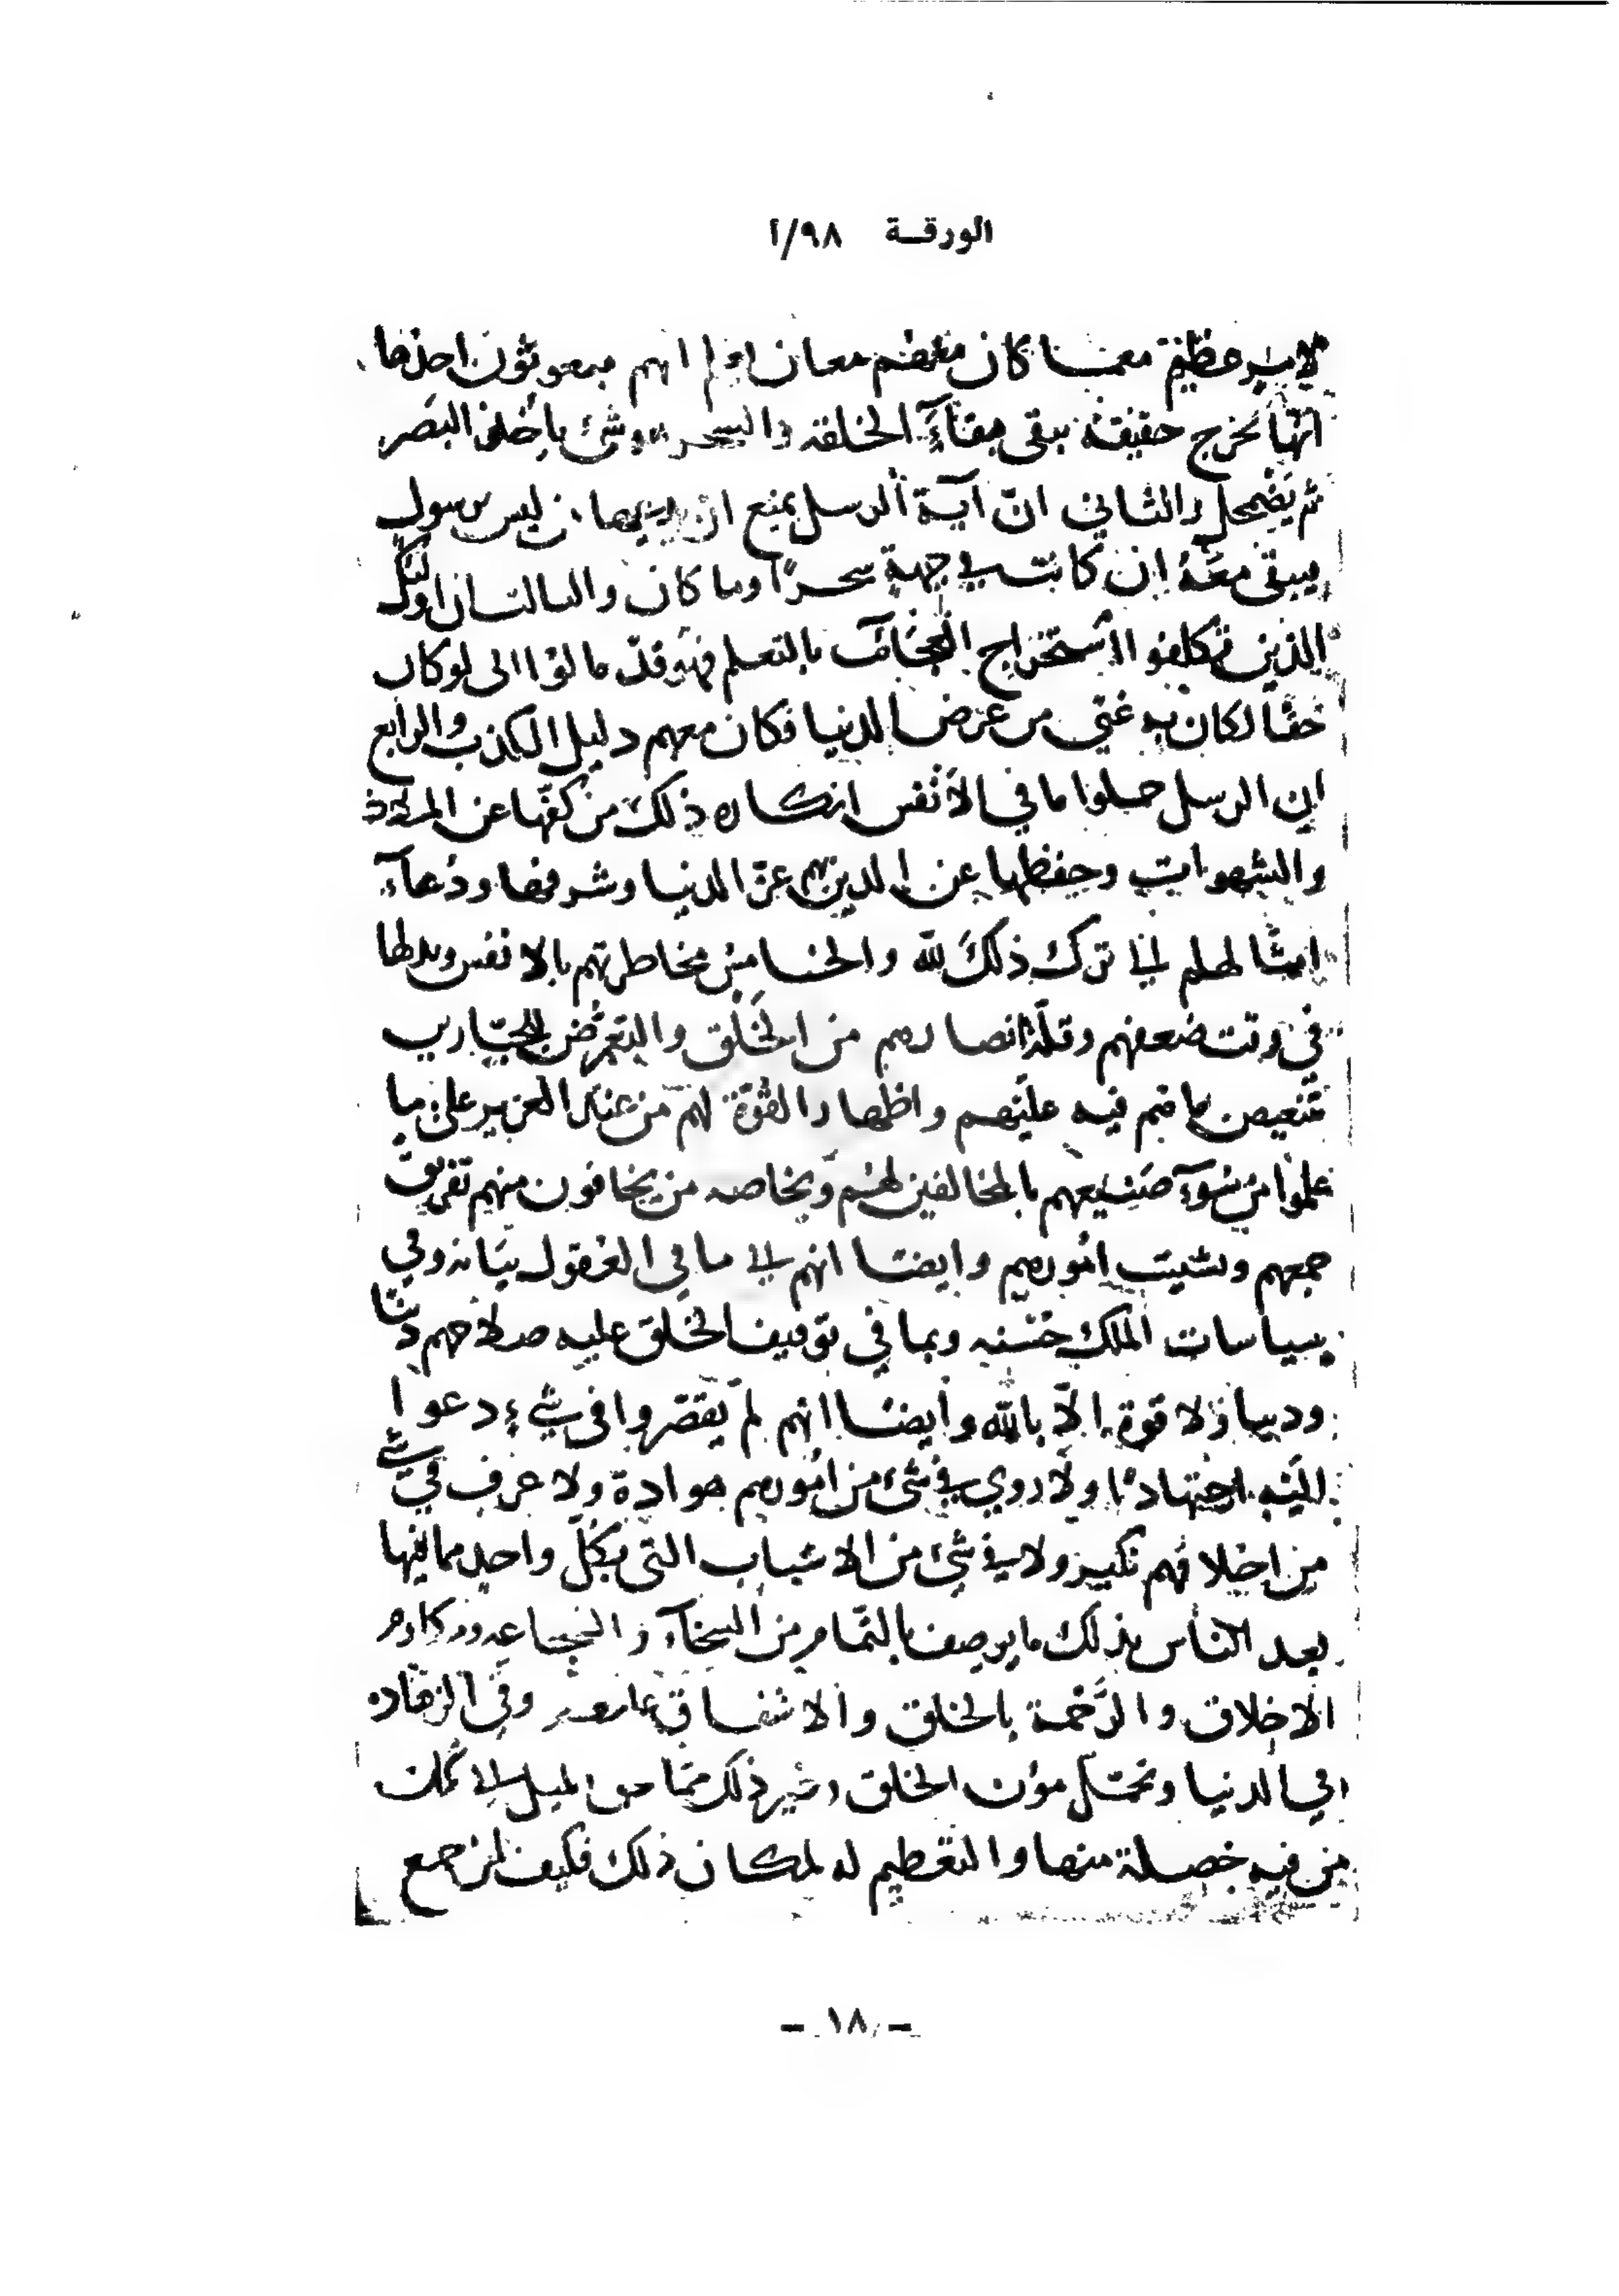 الورقة ٩٨/أ
معان انهم مبعوثون احدها
انها تخرج حقيقة تبقى بقاء الخلقة والسحر هو شئ ياخذ البصر
ثم يضمحل والثاني ان آية الرسل يمنع ان ليس رسول
يبقى معه ان كانت في جهة سحرًا وما كان والثالث ان اولئك
الذين تكلفوا استخراج بالتعلم فهو قد قالوا الى لو كان
حقًا لكان به غنى من عرض الدنيا فكان معهم دليل الكذب والرابع
ان الرسل حملوا ما في الأنفس انكاره ذلك من كفها عن الملاذ
والشهوات وحفظها عن الدين بهم عز الدنيا وشرفها ودعاء
امثالهم الى ترك ذلك لله والخامس مخاطرتهم بالانفس وبذلها
في وقت ضعفهم وقلة انصارهم من الخلق والتعرض للجبارين
بتنغيص ما هم فيه عليهم واظهار القوة لهم من عند العزيز على ما
علموا من سوء صنيعهم بالمخالفين لهم وبخاصه من يخافون منهم تفريق
جمعهم وتشتيت امورهم وايضا انهم الى ما في العقول بيانه وفي
سياسات الملك حسنه وبما في توقيف الخلق عليه صلاحهم دينا
ودنيا ولا قوة الا بالله وايضا انهم لم يقصروا في شيء دعوا
اليه اجتهادًا ولا روي في شئ من امورهم هوادة ولا عرف في شئ
من اخلاقهم نكير ولا في شئ من الاسباب التي بكل واحد مما فيها
بعد الناس بذلك ما يوصف بالتمام من السخاء والشجاعه ومكارم
الاخلاق والرحمة بالخلق والاشفاق وفي الزهادة
في الدنيا وتحمل مؤن الخلق وغير ذلك مما حق الميل الى
من فيه خصلة منها والتعظيم له لمكان ذلك فكيف لمن جمع
- ١٨ -